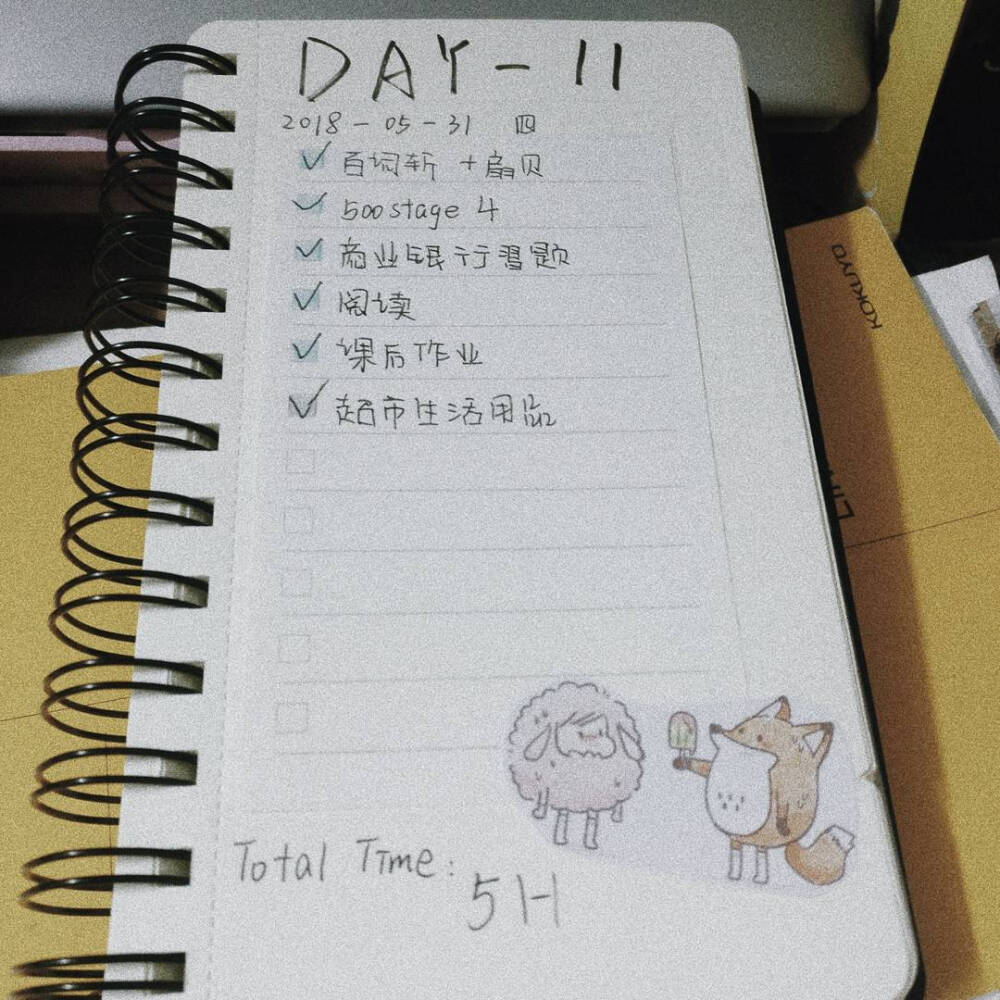 DAY-11
2018-05-31 四
百词斩 +扇贝
500 stage 4
商业银行习题
阅读
课后作业
超市生活用品
Total Time:
5H
KOKUYO